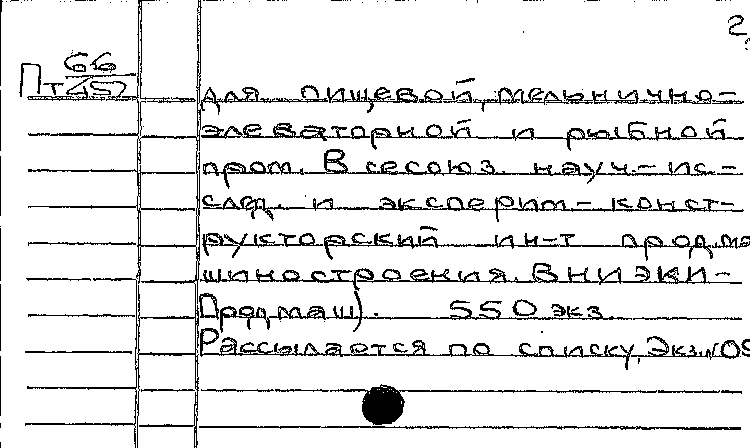 2
Пт 66/452
для пищевой, мельнично-
элеваторной и рыбной
пром. Всесоюз. науч.-ис-
след. и эксперим.-конст-
рукторский ин-т продма
шиностроения. ВНИЭКИ-
Продмаш). 550 экз.
Рассылается по списку. Экз.